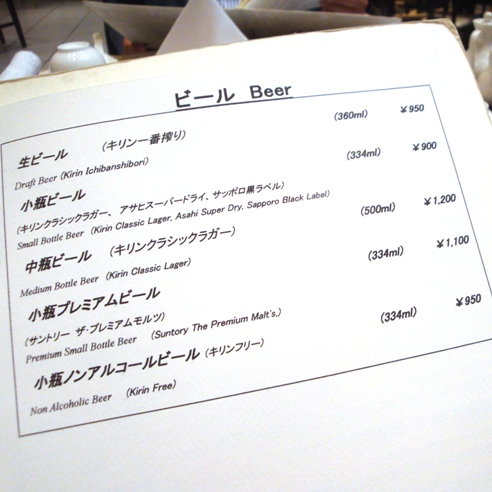 ビール Beer
生ビール (キリン一番搾り) (360ml) ¥950
Draft Beer (Kirin Ichibanshibori)
小瓶ビール (334ml) ¥900
(キリンクラシックラガー、アサヒスーパードライ、サッポロ黒ラベル)
Small Bottle Beer (Kirin Classic Lager, Asahi Super Dry, Sapporo Black Label)
中瓶ビール (キリンクラシックラガー) (500ml) ¥1,200
Medium Bottle Beer (Kirin Classic Lager)
小瓶プレミアムビール (334ml) ¥1,100
(サントリー ザ・プレミアムモルツ)
Premium Small Bottle Beer (Suntory The Premium Malt's,)
小瓶ノンアルコールビール (キリンフリー) (334ml) ¥950
Non Alcoholic Beer (Kirin Free)